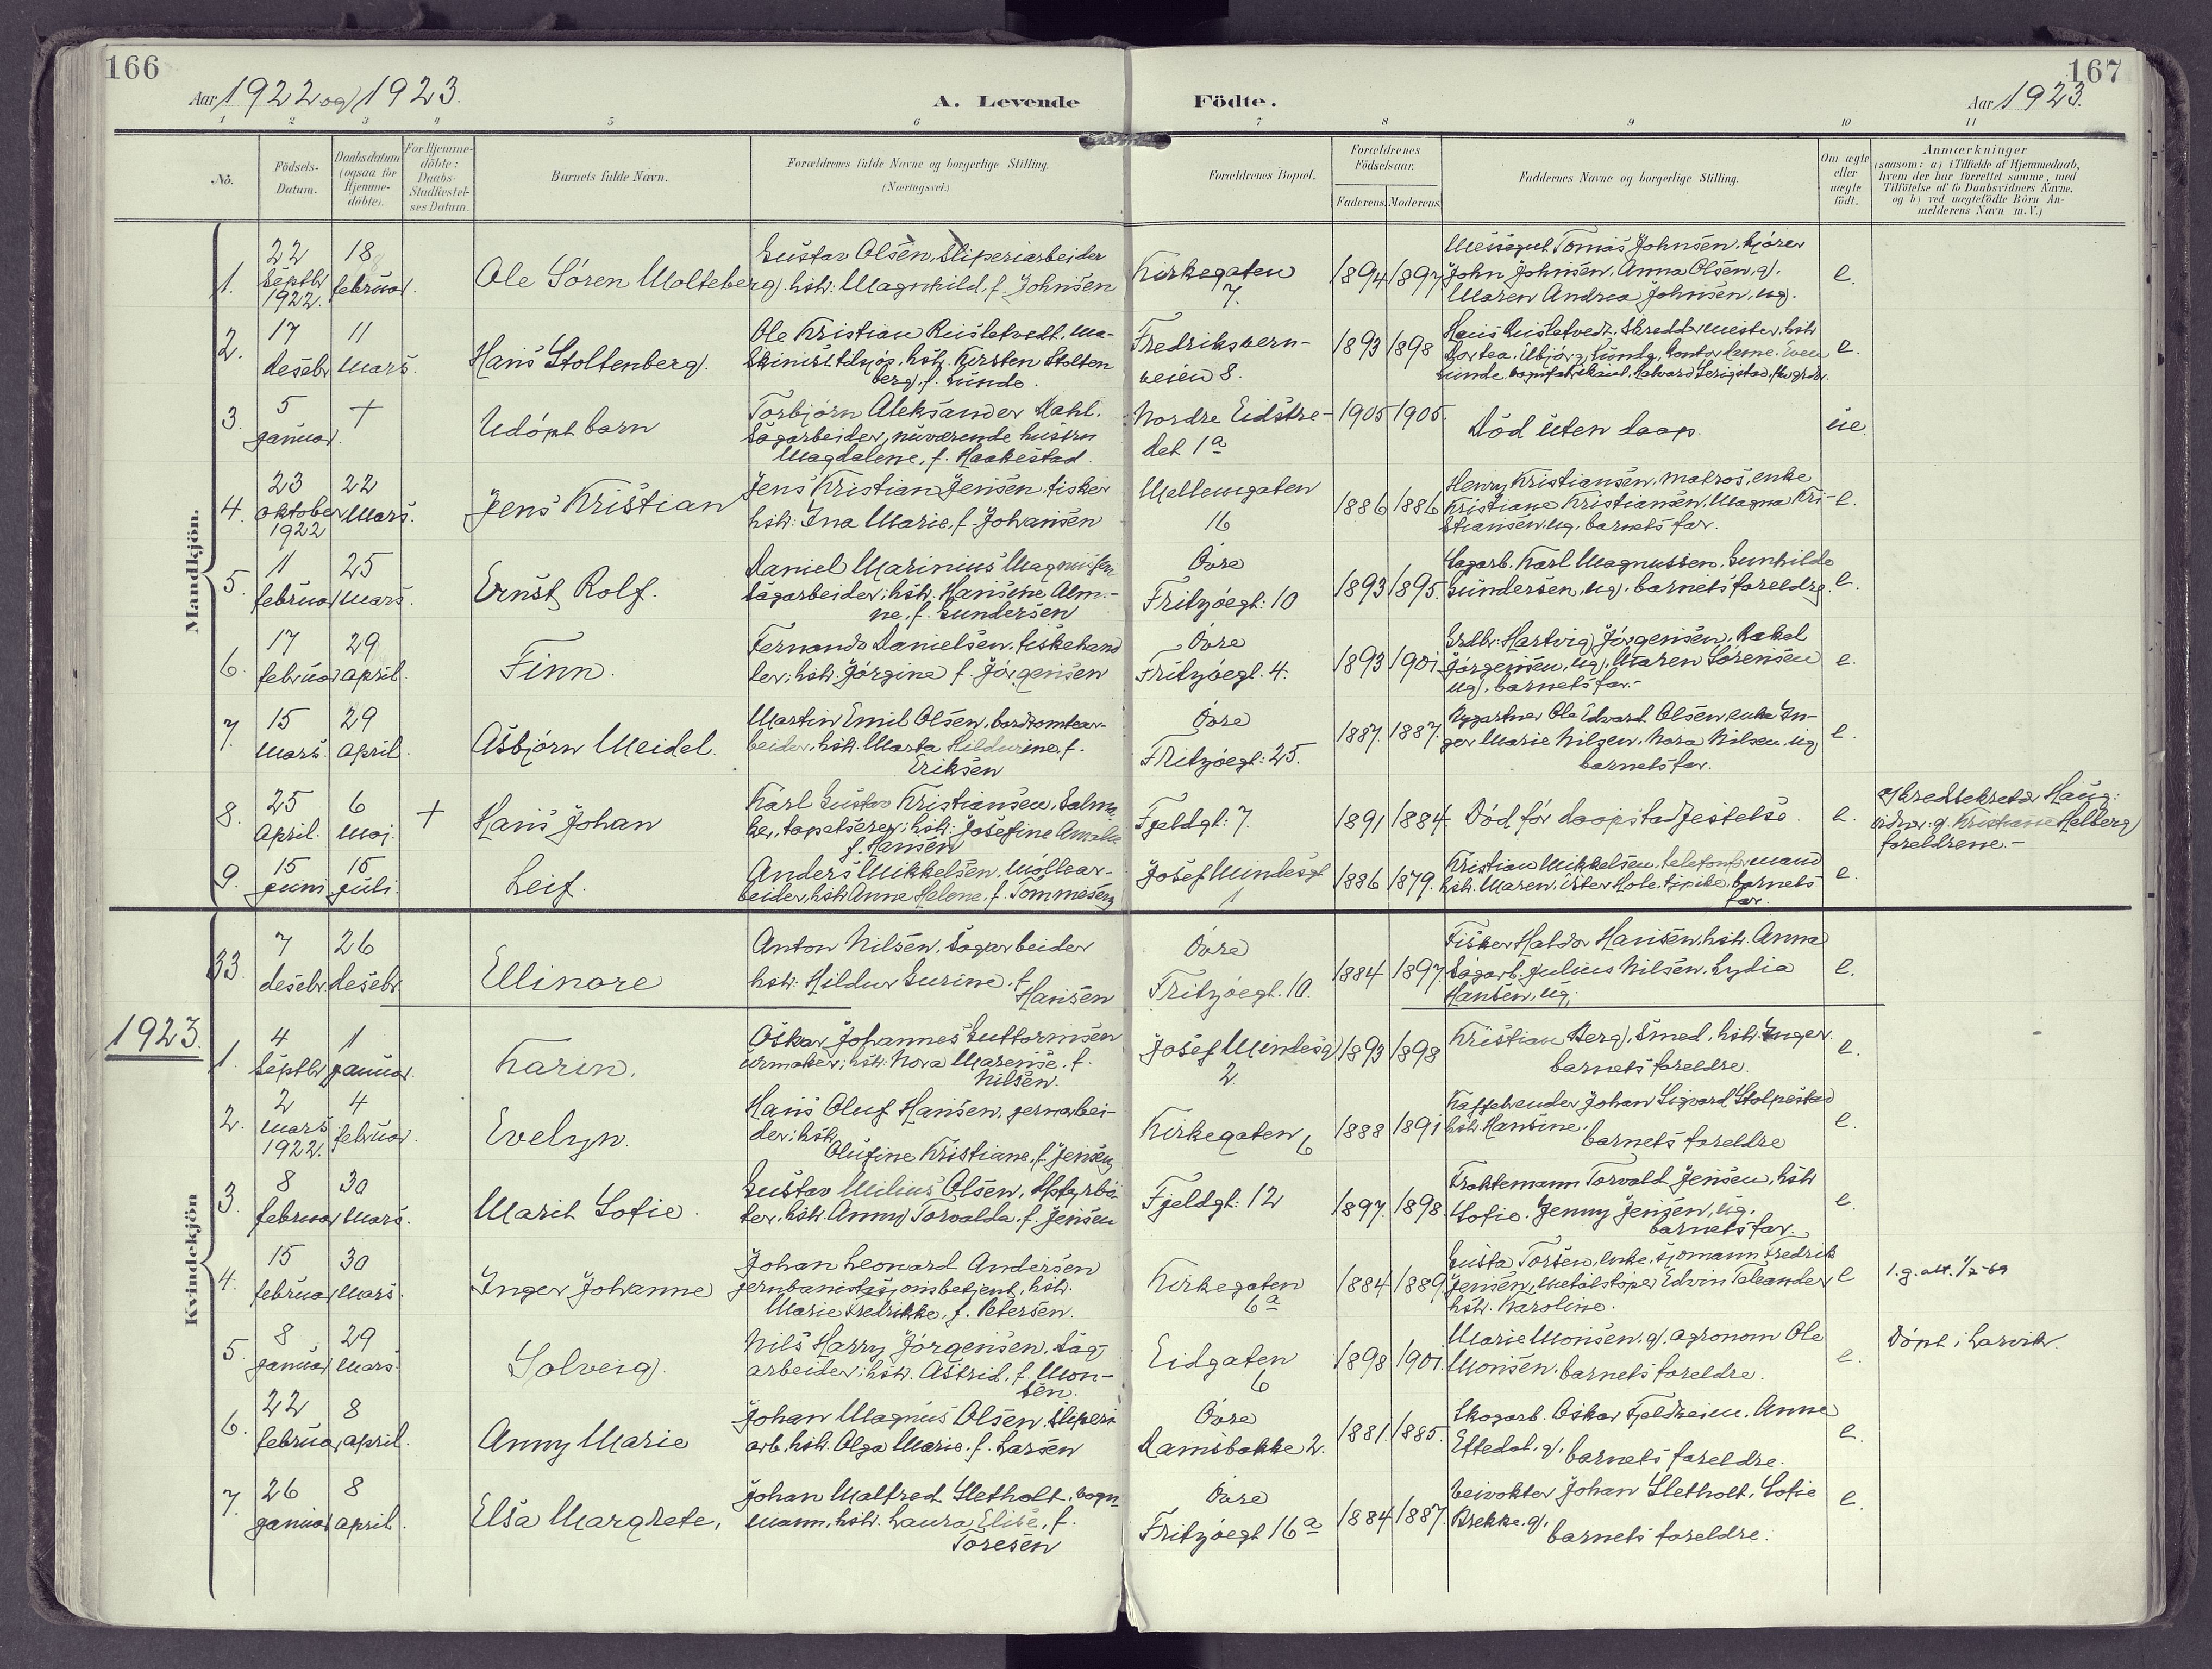 166
167
Aar 1922 og 1923.
A. Levende
Födte.
Aar 1923.
1 2 3 4 5 6 7 8 9 10 11
No.
Födsels-
Datum.
Daabsdatum
(ogsaa for
Hjemme-
döbte).
For Hjemme-
döbte:
Daabs-
Stadfæstel-
ses Datum.
Barnets fulde Navn.
Forældrenes fulde Navne og borgerlige Stilling.
(Næringsvei.)
Forældrenes Bopæl.
Forældrenes
Födselsaar.
Faderens. Moderens.
Faddernes Navne og borgerlige Stilling.
Om ægte
eller
uægte
födt.
Anmærkninger
(saasom: a) i Tilfælde af Hjemmedaab,
hvem der har forrettet samme, med
Tilföielse af to Daabsvidners Navne.
og b) ved uægtefödte Börn An-
melderens Navn m. V.)
Mandkjön.
1.
22
Septbr
1922.
18
februar.
Ole Sören Molteberg.
Gustav Olsen, Sliperiarbeider
hstr: Magnhild, f. Johnsen
Kirkegaten
7.
1894 1897
Tomas Johnsen, kjører
John Johnsen, Anna Olsen, g.
Maren Andrea Johnsen, ug.
e.
2.
17
desebr
11
Mars.
Hans Stoltenberg.
Ole Kristian Ruistetvedt, ma-
skinist tilsjøs, hstr. Kirsten Stolten
berg, f. Lunde.
Fredriksvern-
veien 8.
1893 1898
e.
3.
5
januar.
+
Udöpt barn
Torbjörn Aleksander Dahl.
Sagarbeider, nuværende hustru
Magdalene, f. Haakestad.
Nordre Eidstre-
det 1a
1905 1905.
Död uten daap.
ue.
4.
23
oktober
1922
22
Mars.
Jens Kristian
Jens Kristian Jensen fisker
hstr: Ina Marie, f Johansen
Mellemgaten
16
1886 1886
Henry Kristiansen, matros, enke
Kristiane Kristiansen, Magna Kri-
stiansen, ug, barnets far.
e.
5.
11
februar
25
Mars.
Ernst Rolf.
Daniel Marinius Magnussen
Sagarbeider; hstr. Hansine Alm-
ne, f. Gundersen
Övre
Fritzöegt: 10
1893 1895.
Sagarb. Karl Magnussen. Gunhilde
Gundersen, ug, barnets foreldre.
e.
6.
17
februar
29
april.
Finn.
Fernando Danielsen, fiskehand
ler; hstr. Jörgine f. Jörgensen
Övre
Fritzöegt. 4.
1893 1901
Grdbr. Hartvig Jörgensen, Rakel
Jörgensen, ug, Maren Sörensen
ug, barnets far.-
e.
7.
15
Mars.
29
April.
Asbjörn Meidel.
Martin Emil Olsen, bordtomtear-
beider, hstr. Marta Hildurine, f.
Eriksen
Övre
Fritzöegt: 25.
1887. 1887.
Ole Edvard Olsen, enke In-
ger Marie Nilsen, Nora Nilsen, ug
barnets far.
e.
8.
25
April.
6
Maj.
+
Hans Johan
Karl Gustav Kristiansen, Salma
ker, tapetserer; hstr: Josefine Amalie
f. Hansen
Fjeldgt: 7.
1891 1884
Död för daapstadfestelse.
e.
Haug:
vidner: g. Kristiane Helberg
foreldrene.-
9.
15
juni
15
juli.
Leif.
Anders Mikkelsen, Möllear-
beider, hstr Anne Helene, f. Tommesen
Josef Mindesgt
1
1886 1879.
Kristian Mikkelsen, telefonformand
hstr. Maren, Ester Hole, barnets
far.
e.
33.
7
desebr
26
desebr
Ellinore
Anton Nilsen, Sagarbeider
hstr: Hildur Gurine, f.
Hansen
Övre
Fritzöegt. 10.
1884 1897
Fisker Haldor Hansen, hstr. Anna
Sagarb. Julius Nilsen, Lydia
Hansen, ug.
e.
1923.
Kvindekjön
1.
4
Septbr
1
januar.
Karin.
Oskar Johannes Guttormsen
urmaker; hstr: Nora Marense, f.
Nilsen.
Josef Mindesg
2
1893 1898
Kristian Berg, Smed, hstr. Inger
barnets foreldre.
e.
2.
2
Mars
1922.
4
februar.
Evelyn.
Hans Oluf Hansen, jernarbei-
der; hstr
Olufine Kristiane, f. Jensen
Kirkegaten 6
1888 1891
Johan Sigvard Stolpestad
hstr. Hansine.
barnets foreldre
e.
3.
8
februar
30
Mars.
Marit Sofie.
Gustav Milius Olsen,
ter, hstr. Anny Torvalda. f. Jensen
Fjeldgt: 12
1897. 1898.
Fraktemann Torvald Jensen, hstr
Sofie. Jenny Jensen, ug.
barnets far.
e.
4.
15
februar
30
Mars.
Inger Johanne
Johan Leonard Andersen
jernbanestasjonsbetjent, hstr.
Marie Fredrikke, f. Petersen.
Kirkegaten
6a
1884 1889.
Gusta Torsen, enke, sjömann Fredrik
Jensen, Metalstöper Edvin
hstr. Karoline.
e
l.g.att. 1/2-69
5.
8
januar
29
Mars.
Solveig.
Nils Harry Jörgensen, Sag-
arbeider; hstr. Astrid, f. Mon-
sen.
Eidgaten
6
1898 1901.
Marie Monsen, g. agronom Ole
Monsen, barnets foreldre.
e.
Döpt i Larvik.
6.
22
februar
8
april.
Anny Marie
Johan Magnus Olsen, Sliperi
arb, hstr. Olga Marie, f. Larsen
Övre
Damsbakke 2.
1881. 1885.
Skogarb. Oskar Fjeldheim, Anna
Eftedal, g, barnets foreldre.
e.
7.
26
januar
8
april.
Elsa Margrete,
Johan Malfred Sletholt, vogn
mann, hstr. Laura Elise, f.
Toresen
Övre
Fritzöegt 16a
1884 1887.
Veivokter Johan Sletholt, Sofie
Brekke, g,
barnets foreldre.
e.